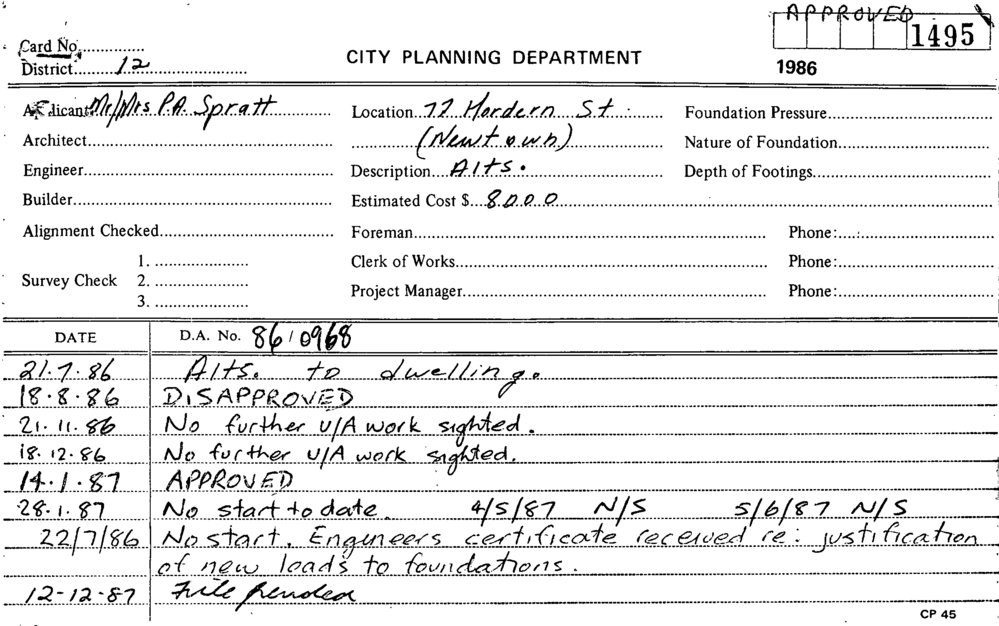 APPROVED
Card No...............
1495
District......12......
CITY PLANNING DEPARTMENT
1986
Applicant Mr/Mrs P.A. Spratt
Location 77 Hordern St.
Foundation Pressure
Architect
(Newtown)
Nature of Foundation
Engineer
Description Alts.
Depth of Footings
Builder
Estimated Cost $ 8000
Alignment Checked
Foreman
Phone:
Survey Check
1.
2.
3.
Clerk of Works
Phone:
Project Manager
Phone:
DATE D.A. No. 86/0968
21.7.86 Alts. to dwelling.
18.8.86 DISAPPROVED
21.11.86 No further U/A work sighted.
18.12.86 No further U/A work sighted.
14.1.87 APPROVED
28.1.87 No start to date. 4/5/87 N/S 5/6/87 N/S
22/7/86 No start. Engineers certificate received re: justification
of new loads to foundations.
12-12-87 File
CP 45